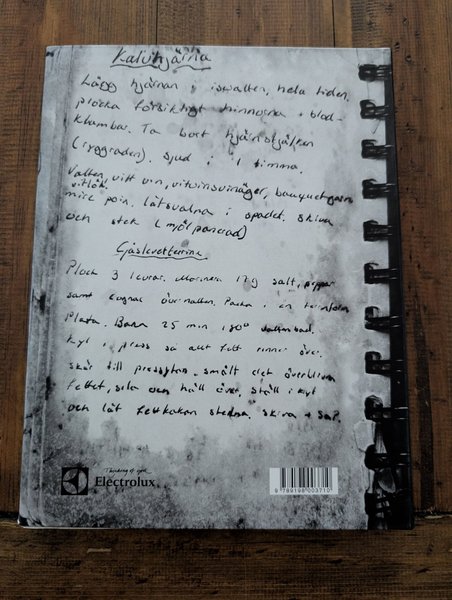 Kalvhjärna
Lägg hjärnan i isvatten, hela tiden.
plocka försiktigt hinnorna + blod-
klumbar. Ta bort hjärnstjälken
(ryggraden). Sjud i 1 timma.
Vatten, vitt vin, vitvinsvinäger, bouquetgarni
vitlök.
mirepoix. låt svalna i spadet. skiva
och stek (mjölpanerad)
Gåsleverterrine
Plock 3 levrar. Marinera 17g salt, peppar
samt cognac över natten. Packa i en terrinform
Plasta. Baka 25 min 180° vattenbad.
kyl i press så att fett rinner över.
skär till pressytan. smält det överblivna
fettet, sila och häll över. ställ i kyl
och låt fettkakan stelna. skiva +
Thinking of you
Electrolux
9 789198 003710